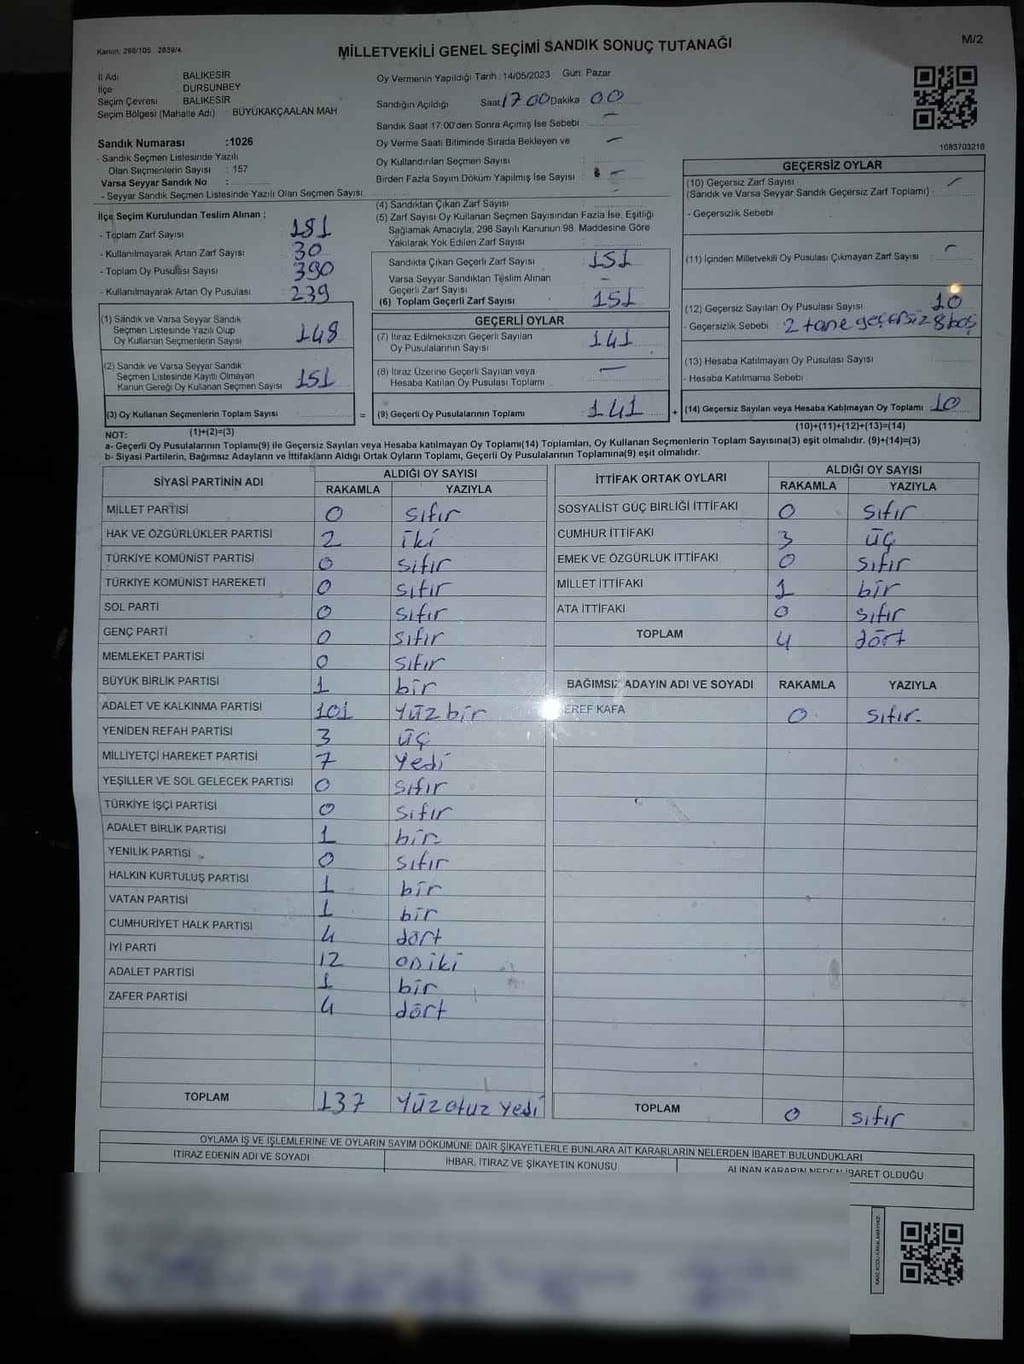 Kanun: 298/105 2839/4
MİLLETVEKİLİ GENEL SEÇİMİ SANDIK SONUÇ TUTANAĞI
M/2
İl Adı BALIKESİR
İlçe DURSUNBEY
Seçim Çevresi BALIKESİR
Seçim Bölgesi (Mahalle Adı) BÜYÜKAKÇAALAN MAH.
Sandık Numarası :1026
- Sandık Seçmen Listesinde Yazılı
Olan Seçmenlerin Sayısı : 157
Varsa Seyyar Sandık No :
- Seyyar Sandık Seçmen Listesinde Yazılı Olan Seçmen Sayısı
Oy Vermenin Yapıldığı Tarih : 14/05/2023 Gün: Pazar
Sandığın Açıldığı Saat 17 00 Dakika 00
Sandık Saat 17:00'den Sonra Açılmış İse Sebebi —
Oy Verme Saati Bitiminde Sırada Bekleyen ve —
Oy Kullandırılan Seçmen Sayısı
Birden Fazla Sayım Döküm Yapılmış İse Sayısı —
1083703218
İlçe Seçim Kurulundan Teslim Alınan :
- Toplam Zarf Sayısı 181
- Kullanılmayarak Artan Zarf Sayısı 30
- Toplam Oy Pusulası Sayısı 390
- Kullanılmayarak Artan Oy Pusulası 239
(1) Sandık ve Varsa Seyyar Sandık
Seçmen Listesinde Yazılı Olup
Oy Kullanan Seçmenlerin Sayısı 148
(2) Sandık ve Varsa Seyyar Sandık
Seçmen Listesinde Kayıtlı Olmayan
Kanun Gereği Oy Kullanan Seçmen Sayısı 151
(3) Oy Kullanan Seçmenlerin Toplam Sayısı =
(1)+(2)=(3)
(4) Sandıktan Çıkan Zarf Sayısı
(5) Zarf Sayısı Oy Kullanan Seçmen Sayısından Fazla İse, Eşitliği
Sağlamak Amacıyla, 298 Sayılı Kanunun 98. Maddesine Göre
Yakılarak Yok Edilen Zarf Sayısı
Sandıkta Çıkan Geçerli Zarf Sayısı 151
Varsa Seyyar Sandıktan Teslim Alınan
Geçerli Zarf Sayısı —
(6) Toplam Geçerli Zarf Sayısı 151
GEÇERLİ OYLAR
(7) İtiraz Edilmeksizin Geçerli Sayılan
Oy Pusulalarının Sayısı 141
(8) İtiraz Üzerine Geçerli Sayılan veya
Hesaba Katılan Oy Pusulası Toplamı —
(9) Geçerli Oy Pusulalarının Toplamı 141 +
GEÇERSİZ OYLAR
(10) Geçersiz Zarf Sayısı
(Sandık ve Varsa Seyyar Sandık Geçersiz Zarf Toplamı) —
- Geçersizlik Sebebi
(11) İçinden Milletvekili Oy Pusulası Çıkmayan Zarf Sayısı —
(12) Geçersiz Sayılan Oy Pusulası Sayısı 10
- Geçersizlik Sebebi 2 tane geçersiz 8 boş
(13) Hesaba Katılmayan Oy Pusulası Sayısı
- Hesaba Katılmama Sebebi
(14) Geçersiz Sayılan veya Hesaba Katılmayan Oy Toplamı 10
(10)+(11)+(12)+(13)=(14)
NOT:
a- Geçerli Oy Pusulalarının Toplamı(9) ile Geçersiz Sayılan veya Hesaba katılmayan Oy Toplamı(14) Toplamları, Oy Kullanan Seçmenlerin Toplam Sayısına(3) eşit olmalıdır. (9)+(14)=(3)
b- Siyasi Partilerin, Bağımsız Adayların ve İttifakların Aldığı Ortak Oyların Toplamı, Geçerli Oy Pusulalarının Toplamına(9) eşit olmalıdır.
SİYASİ PARTİNİN ADI ALDIĞI OY SAYISI
RAKAMLA YAZIYLA
MİLLET PARTİSİ 0 sıfır
HAK VE ÖZGÜRLÜKLER PARTİSİ 2 iki
TÜRKİYE KOMÜNİST PARTİSİ 0 sıfır
TÜRKİYE KOMÜNİST HAREKETİ 0 sıfır
SOL PARTİ 0 sıfır
GENÇ PARTİ 0 sıfır
MEMLEKET PARTİSİ 0 sıfır
BÜYÜK BİRLİK PARTİSİ 1 bir
ADALET VE KALKINMA PARTİSİ 101 Yüz bir
YENİDEN REFAH PARTİSİ 3 üç
MİLLİYETÇİ HAREKET PARTİSİ 7 Yedi
YEŞİLLER VE SOL GELECEK PARTİSİ 0 sıfır
TÜRKİYE İŞÇİ PARTİSİ 0 sıfır
ADALET BİRLİK PARTİSİ 1 bir
YENİLİK PARTİSİ 0 sıfır
HALKIN KURTULUŞ PARTİSİ 1 bir
VATAN PARTİSİ 1 bir
CUMHURİYET HALK PARTİSİ 4 dört
İYİ PARTİ 12 oniki
ADALET PARTİSİ 1 bir
ZAFER PARTİSİ 4 dört
TOPLAM 137 Yüz otuz yedi
İTTİFAK ORTAK OYLARI ALDIĞI OY SAYISI
RAKAMLA YAZIYLA
SOSYALİST GÜÇ BİRLİĞİ İTTİFAKI 0 sıfır
CUMHUR İTTİFAKI 3 üç
EMEK VE ÖZGÜRLÜK İTTİFAKI 0 sıfır
MİLLET İTTİFAKI 1 bir
ATA İTTİFAKI 0 sıfır
TOPLAM 4 dört
BAĞIMSIZ ADAYIN ADI VE SOYADI RAKAMLA YAZIYLA
EREF KAFA 0 sıfır
TOPLAM 0 sıfır
OYLAMA İŞ VE İŞLEMLERİNE VE OYLARIN SAYIM DÖKÜMÜNE DAİR ŞİKAYETLERLE BUNLARA AİT KARARLARIN NELERDEN İBARET BULUNDUKLARI
İTİRAZ EDENİN ADI VE SOYADI İHBAR, İTİRAZ VE ŞİKAYETİN KONUSU ALINAN KARARIN NEDEN İBARET OLDUĞU